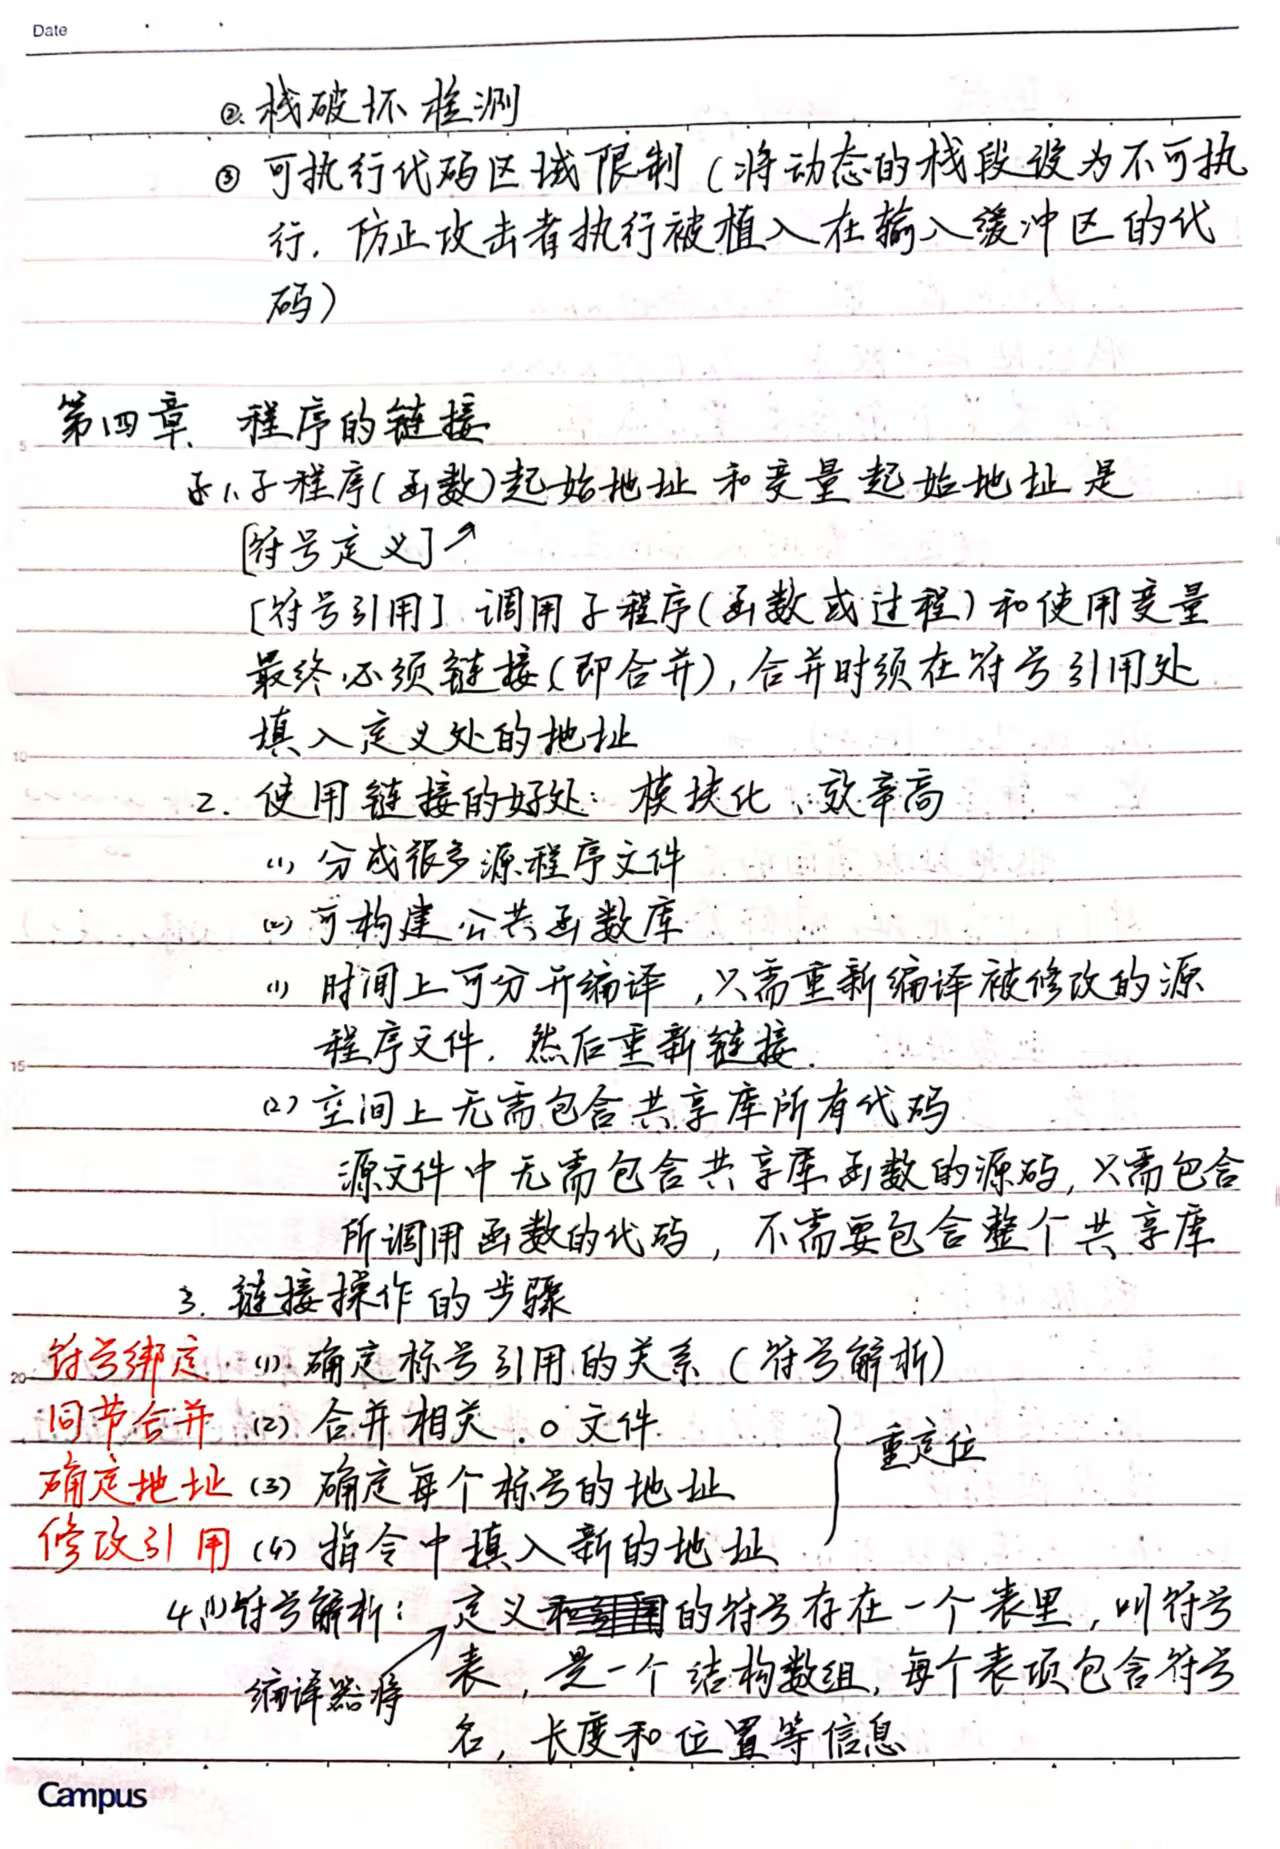 Date
②. 栈破坏检测
③ 可执行代码区域限制 (将动态的栈段设为不可执
行. 防止攻击者执行被植入在输入缓冲区的代
码)
第四章. 程序的链接
1. 子程序(函数)起始地址和变量起始地址是
[符号定义]↗
[符号引用] 调用子程序(函数或过程)和使用变量
最终必须链接(即合并), 合并时须在符号引用处
填入定义处的地址
2. 使用链接的好处: 模块化、效率高
(1) 分成很多源程序文件
(2) 可构建公共函数库
(1) 时间上可分开编译, 只需重新编译被修改的源
程序文件. 然后重新链接.
(2) 空间上无需包含共享库所有代码
源文件中无需包含共享库函数的源码, 只需包含
所调用函数的代码, 不需要包含整个共享库
3. 链接操作的步骤
符号绑定 (1) 确定标号引用的关系 (符号解析)
同节合并 (2) 合并相关.o文件
确定地址 (3) 确定每个标号的地址
修改引用 (4) 指令中填入新的地址
重定位
4.(1)符号解析: 定义的符号存在一个表里, 叫符号
编译器将
表, 是一个结构数组, 每个表项包含符号
名, 长度和位置等信息
5
10
15
20
Campus